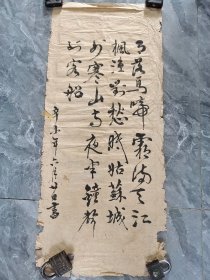 月落烏啼霜滿天江
楓漁火對愁眠姑蘇城
外寒山寺夜半鐘聲
到客船
辛未年六月日書